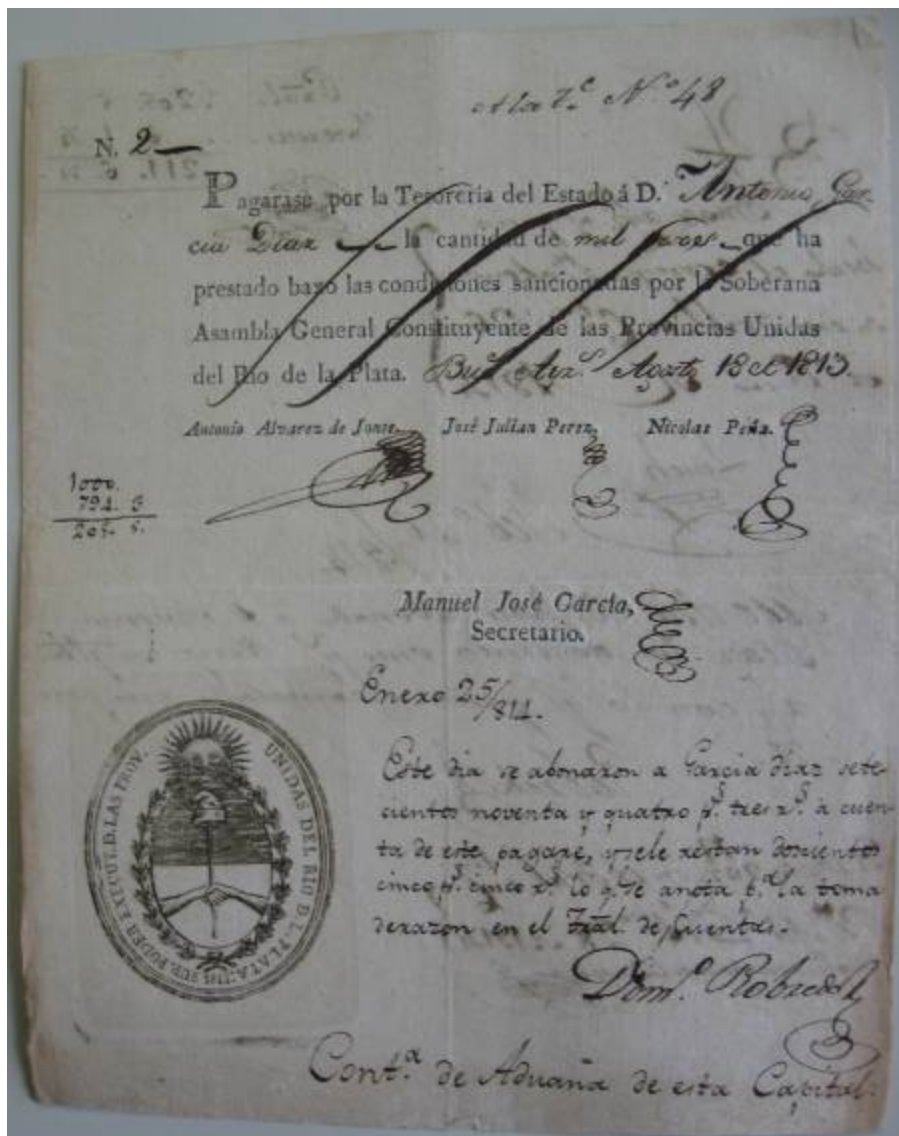 A la 7.ª N.º 48
N. 2
Pagarase por la Tesoreria del Estado á D. Antonio Gar
cia Diaz la cantidad de mil pesos que ha
prestado baxo las condiciones sancionadas por la Soberana
Asambla General Constituyente de las Provincias Unidas
del Rio de la Plata. Bu.s Ay.s Agosto 18 de 1813
Antonio Alvarez de Jonte. José Julian Perez. Nicolas Peña.
1000.
794. 3
205. 5.
Manuel José García,
Secretario.
Enero 25/814.
Este dia se abonaron a Garcia diaz sete
cientos noventa y quatro p.s tres r.s à cuen
ta de este pagare, y sele restan doscientos
cinco p.s cinco r.s lo q.e se anota p.a la toma
derazon en el Tral. de Cuentas.
Dom.º Robredo
Cont.a de Aduana de esta Capital.
SUP. PODER EXECUT. D. LAS PROV. UNIDAS DEL RIO D. L. PLATA